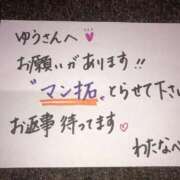 ゆうさんへ♡
お願いがあります!!
"マン拓"とらせて下さい
お返事待ってます♡
わたなべ